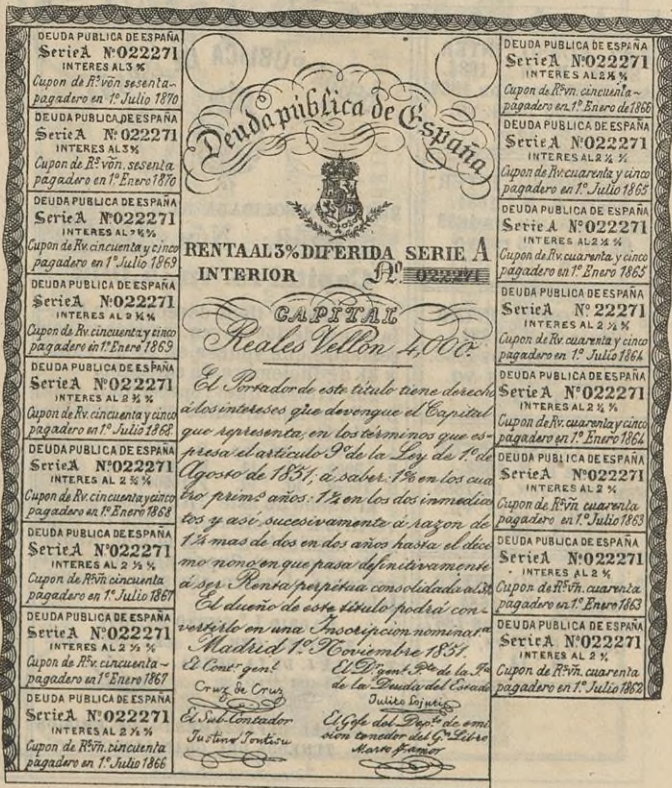 DEUDA PUBLICA DE ESPAÑA
Serie A Nº 022271
INTERES AL 3 %
Cupon de Rˢ vōn sesenta
pagadero en 1º Julio 1870
DEUDA PUBLICA DE ESPAÑA
Serie A Nº 022271
INTERES AL 3 %
Cupon de Rˢ vōn. sesenta
pagadero en 1º Enero 1870
DEUDA PUBLICA DE ESPAÑA
Serie A Nº 022271
INTERES AL
Cupon de Rv. cincuenta y cinco
pagadero en 1º Julio 1869
DEUDA PUBLICA DE ESPAÑA
Serie A Nº 022271
INTERES AL 2 ¾ %
Cupon de Rv. cincuenta y cinco
pagadero en 1º Enero 1869
DEUDA PUBLICA DE ESPAÑA
Serie A Nº 022271
INTERES AL 2 ¾ %
Cupon de Rv. cincuenta y cinco
pagadero en 1º Julio 1868
DEUDA PUBLICA DE ESPAÑA
Serie A Nº 022271
INTERES AL 2 ¾ %
Cupon de Rv. cincuenta y cinco
pagadero en 1º Enero 1868
DEUDA PUBLICA DE ESPAÑA
Serie A Nº 022271
INTERES AL 2 ½ %
Cupon de Rˢ vn cincuenta
pagadero en 1º Julio 1867
DEUDA PUBLICA DE ESPAÑA
Serie A Nº 022271
INTERES AL 2 ½ %
Cupon de Rˢ v. cincuenta
pagadero en 1º Enero 1867
DEUDA PUBLICA DE ESPAÑA
Serie A Nº 022271
INTERES AL 2 ½ %
Cupon de Rˢ vn. cincuenta
pagadero en 1º Julio 1866
Deuda pública de España
RENTA AL 3% DIFERIDA SERIE A
INTERIOR Nº 022271
CAPITAL
Reales Vellon 4,000.
El Portador de este título tiene derecho
á los intereses que devengue el Capital
que representa, en los términos que es-
presa el artículo 9º de la Ley de 1º de
Agosto de 1851; á saber: 1% en los cua
tro primˢ años: 1¼ en los dos inmedia
tos y asi sucesivamente á razon de
¼ mas de dos en dos años hasta el deci
mo nono en que pasa definitivamente
á ser Renta perpétua consolidada al 3%
El dueño de este título podrá con-
vertirlo en una Inscripcion nominatᵃ
Madrid 1º Noviembre 1851.
El Contʳ genˡ
Cruz de Cruz
El Sub-Contador
Justino
El Dʳ genˡ Pᵗᵉ de la Jᵗᵃ
de la Deuda del Estado
El Gefe del Depᵗᵒ de emi
sion tenedor del Gⁿ Libro
DEUDA PUBLICA DE ESPAÑA
Serie A Nº 022271
INTERES AL 2 ½ %
Cupon de Rˢ vn. cincuenta
pagadero en 1º Enero de 1866
DEUDA PUBLICA DE ESPAÑA
Serie A Nº 022271
INTERES AL 2 ¼ %
Cupon de Rv. cuarenta y cinco
pagadero en 1º Julio 1865
DEUDA PUBLICA DE ESPAÑA
Serie A Nº 022271
INTERES AL 2 ¼ %
Cupon de Rv. cuarenta y cinco
pagadero en 1º Enero 1865
DEUDA PUBLICA DE ESPAÑA
Serie A Nº 22271
INTERES AL 2 ¼ %
Cupon de Rv. cuarenta y cinco
pagadero en 1º Julio 1864
DEUDA PUBLICA DE ESPAÑA
Serie A Nº 022271
INTERES AL 2 ¼ %
Cupon de Rv. cuarenta y cinco
pagadero en 1º Enero 1864
DEUDA PUBLICA DE ESPAÑA
Serie A Nº 022271
INTERES AL 2 %
Cupon de Rˢ vn. cuarenta
pagadero en 1º Julio 1863
DEUDA PUBLICA DE ESPAÑA
Serie A Nº 022271
INTERES AL 2 %
Cupon de Rˢ vn. cuarenta
pagadero en 1º Enero 1863
DEUDA PUBLICA DE ESPAÑA
Serie A Nº 022271
INTERES AL 2 %
Cupon de Rˢ vn. cuarenta
pagadero en 1º Julio 1862